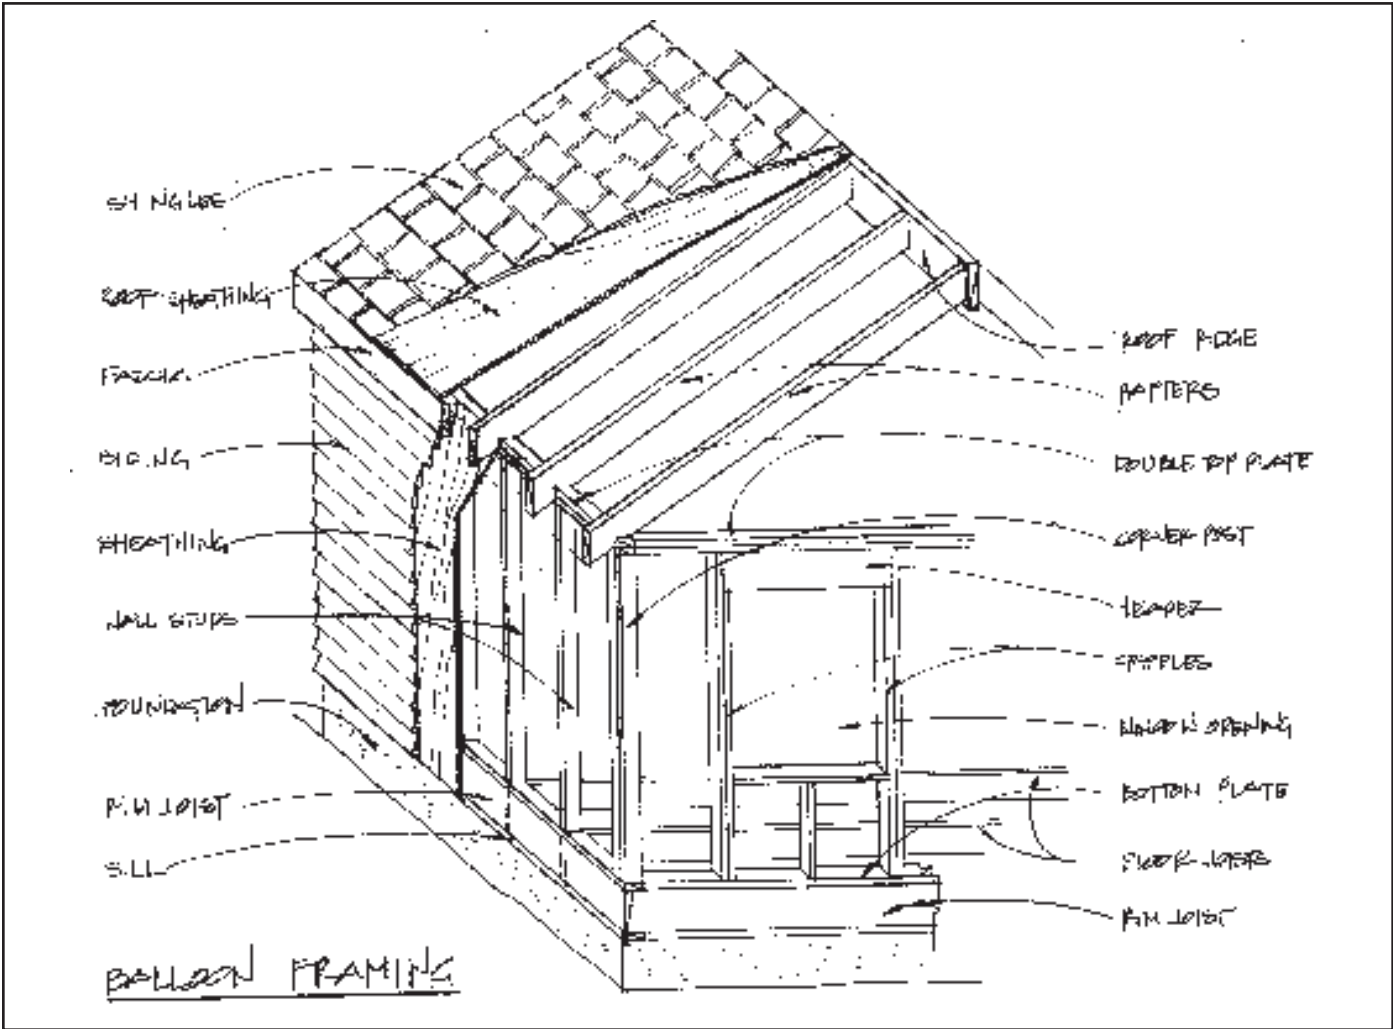 SHINGLE
ROOF SHEATHING
FASCIA
SIDING
SHEATHING
WALL STUDS
FOUNDATION
RIM JOIST
SILL
ROOF RIDGE
RAFTERS
DOUBLE TOP PLATE
CORNER POST
HEADER
CRIPPLES
WINDOW OPENING
BOTTOM PLATE
FLOOR JOISTS
RIM JOIST
BALLOON FRAMING